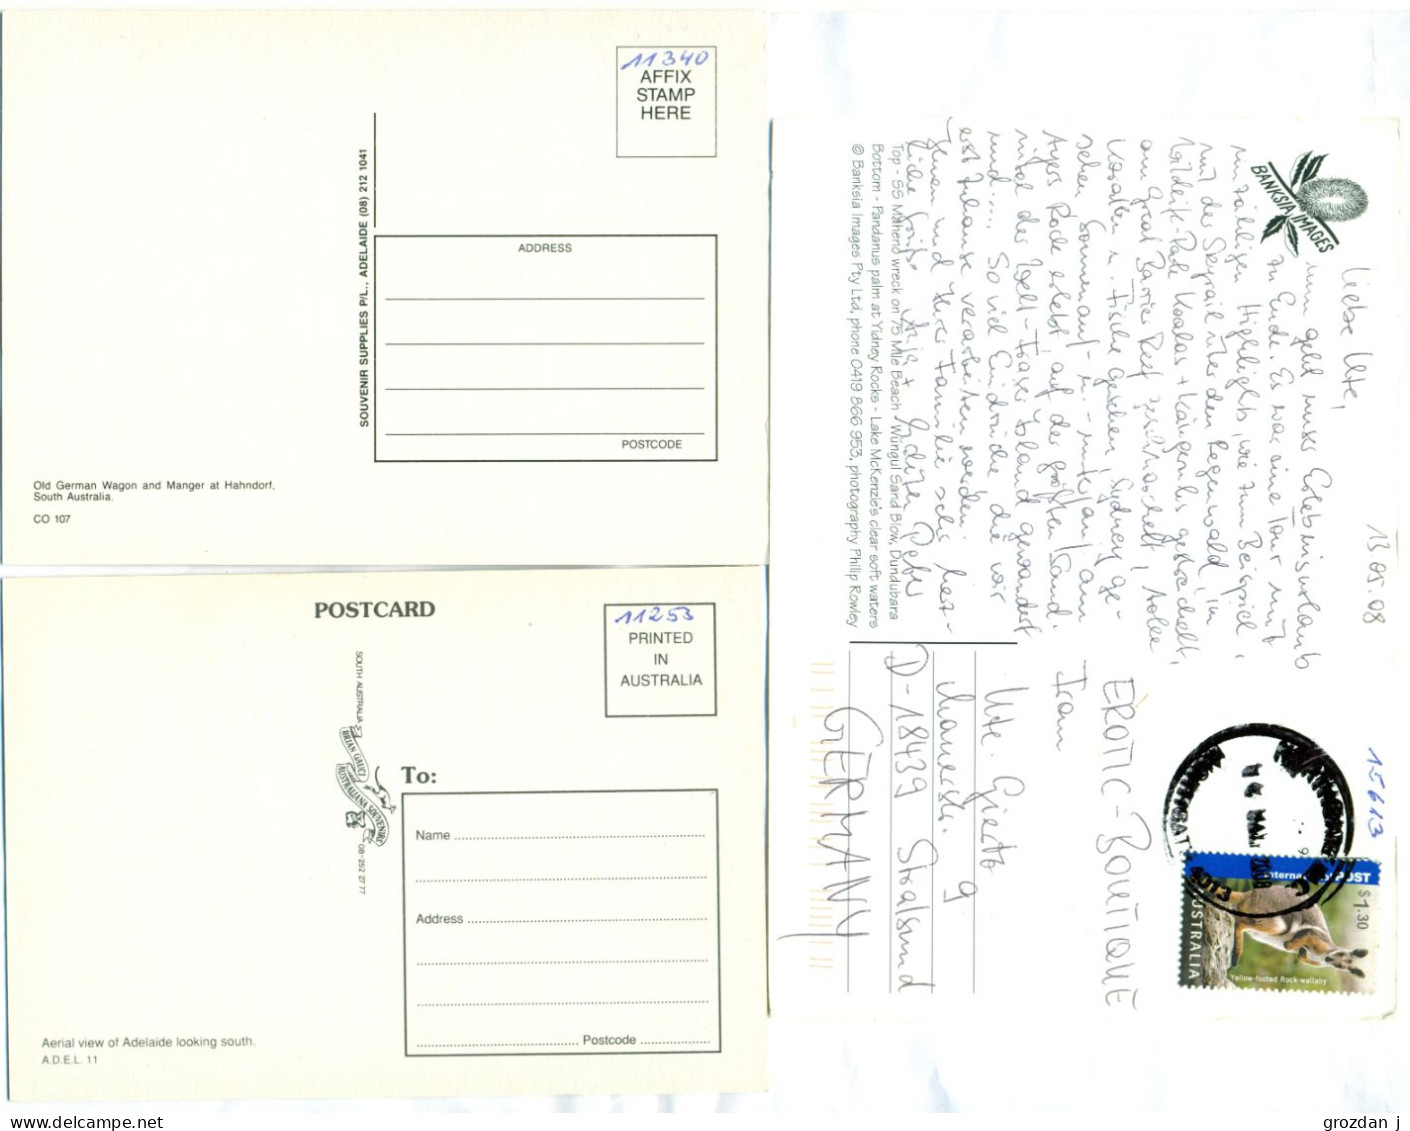 11340
AFFIX
STAMP
HERE
SOUVENIR SUPPLIES P/L., ADELAIDE (08) 212 1041
ADDRESS
POSTCODE
Old German Wagon and Manger at Hahndorf,
South Australia.
CO 107
POSTCARD
11253
PRINTED
IN
AUSTRALIA
SOUTH AUSTRALIA
BRIAN GAUCI
AUSTRALIANA SOUVENIRS
08-252 27 77
To:
Name
Address
Postcode
Aerial view of Adelaide looking south.
A.D.E.L. 11
BANKSIA IMAGES
13.05.08
Liebe Ute,
nun geht unser Erlebnisurlaub
zu Ende. Es war eine Tour mit
unzähligen Highlights, wie zum Beispiel,
mit der Skyrail über den Regenwald, im
Wildlife-Park Koalas + Kängeruhs gestreichelt,
am Great Barrier Reef geschnorchelt, tolle
Korallen u. Fische gesehen, Sydney ge-
sehen, Sonnenauf- u. -untergang am
Ayers Rock erlebt, auf der größten Sand-
insel der Welt - Fraser Island gewandert
und.... So viel Eindrücke die wir
erst zuhause verarbeiten werden.
Ihnen und Ihrer Familie sehr herz-
liche Grüße
Top - SS Maheno wreck on 75 Mile Beach - Wungul Sand Blow, Dundubara
Bottom - Pandanus palm at Yidney Rocks - Lake McKenzie's clear soft waters
© Banksia Images Pty Ltd, phone 0419 866 953, photography Philip Rowley
15613
International POST
$1.30
AUSTRALIA
Yellow-footed Rock-wallaby
2008
EROTIC-BOUTIQUE
Frau
Ute
9
D-18439 Stralsund
GERMANY
grozdan j